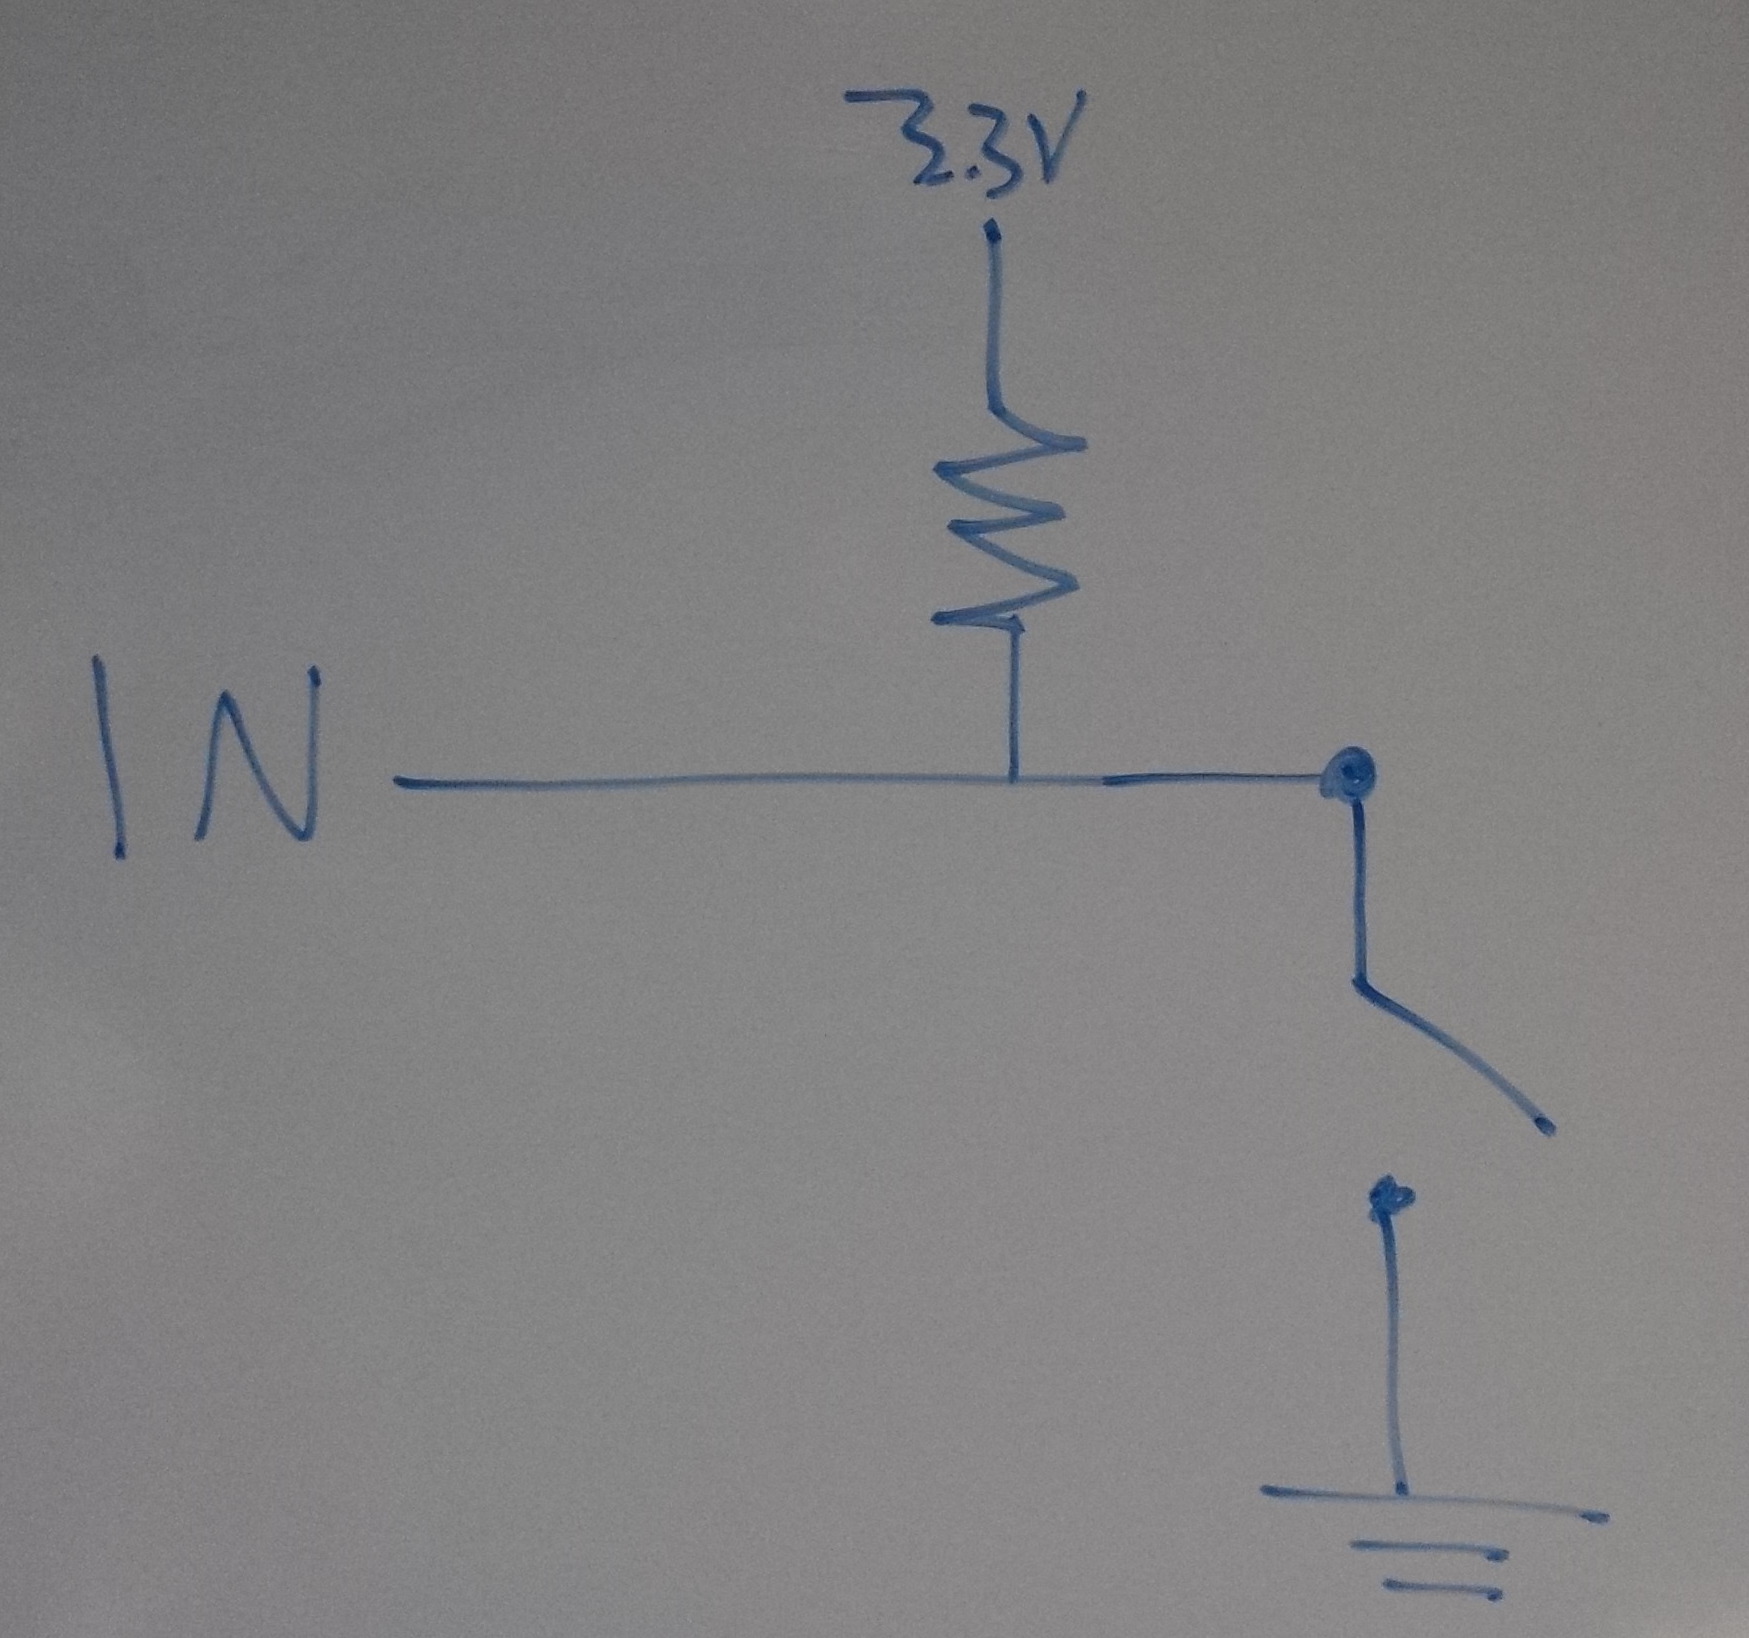 3.3V
IN